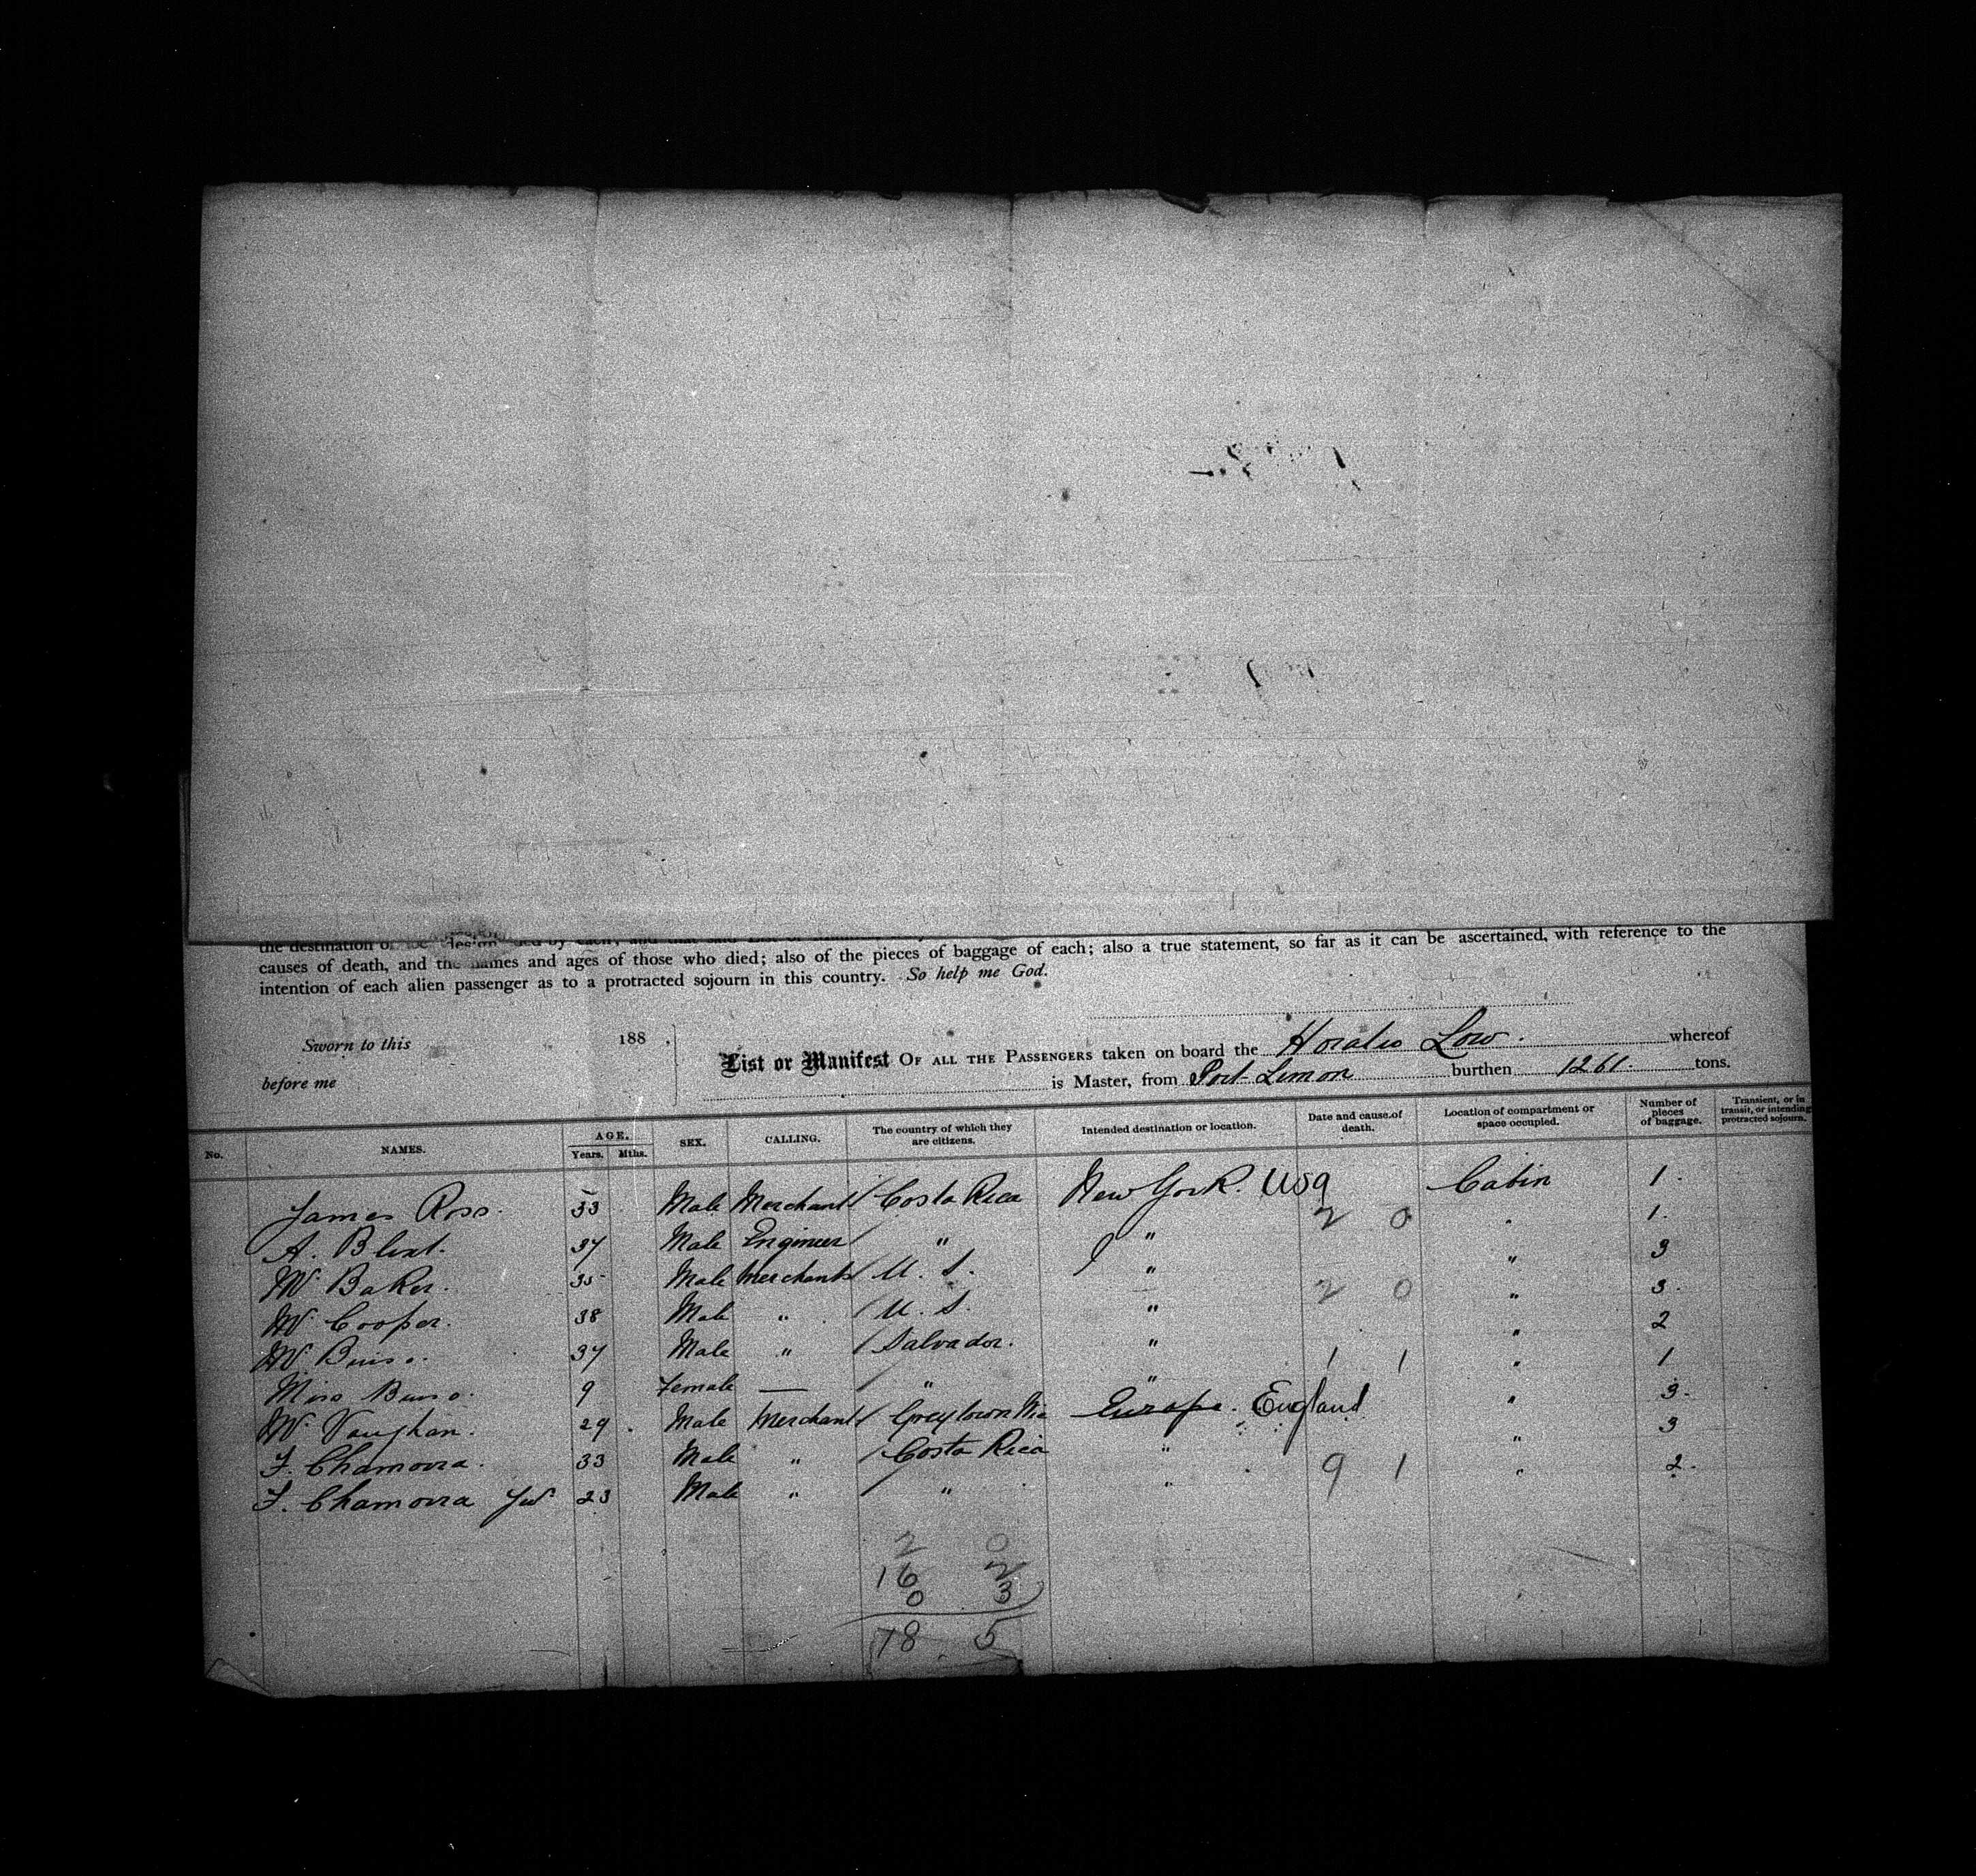 the destination or
causes of death, and the names and ages of those who died; also of the pieces of baggage of each; also a true statement, so far as it can be ascertained, with reference to the
intention of each alien passenger as to a protracted sojourn in this country. So help me God.
Sworn to this 188 .
before me
List or Manifest OF ALL THE PASSENGERS taken on board the Horatio Low. whereof
is Master, from Port Limon burthen 1261. tons.
No. NAMES. AGE. Years. Mths. SEX. CALLING. The country of which they are citizens. Intended destination or location. Date and cause of death. Location of compartment or space occupied. Number of pieces of baggage. Transient, or in transit, or intending protracted sojourn.
James Ross. 33 Male Merchant Costa Rica New York. USA Cabin 1.
A. Blunt. 37 Male Engineer " " 2 0 " 1.
Mr. Baker. 35 Male Merchant U. S. " " 3
Mr Cooper. 38 Male " U. S. " 2 0 " 3.
Mr 37 Male " Salvador. " " 2
Miss 9 Female — " " 1 1 " 1
Mr. Vaughan. 29 Male Merchant Greytown Nic Europe. England " 3.
F. Chamorra. 33 Male " Costa Rica " " 3
F. Chamorra Jur 23 Male " " " 9 1 " 2.
2 0
16 2
0 3
18 5